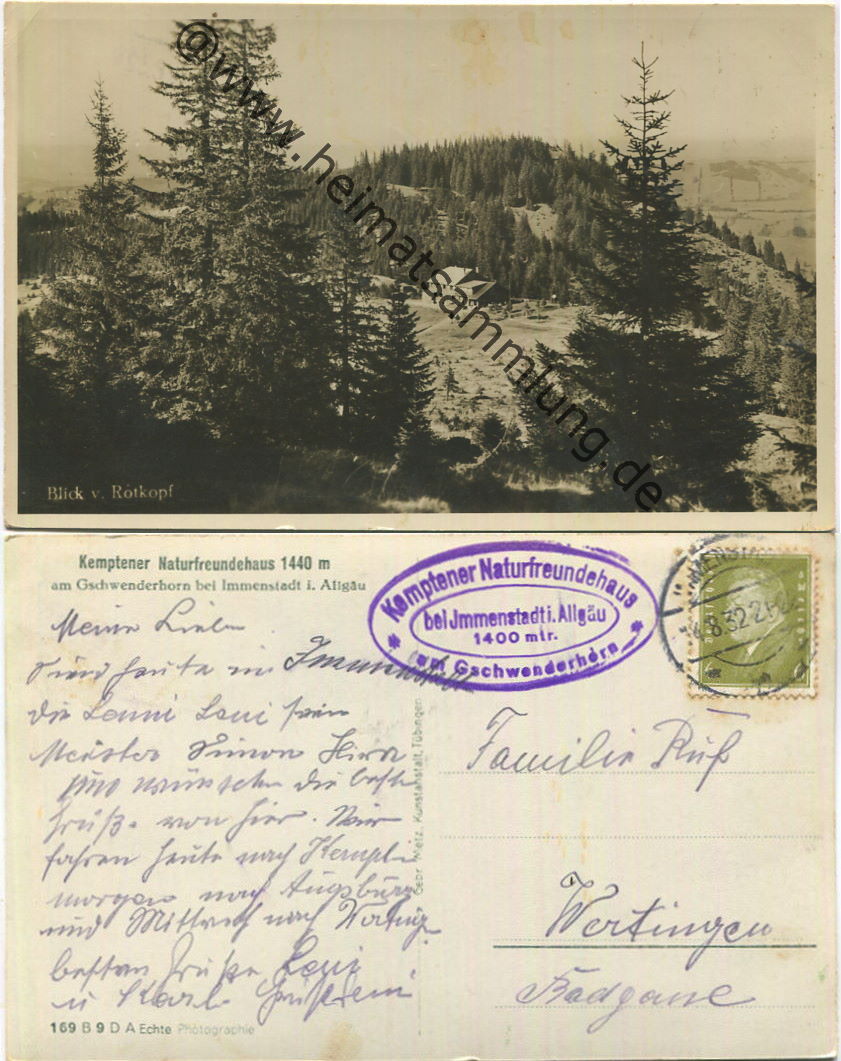 @www.heimatsammlung.de
Blick v. Rotkopf
Kemptener Naturfreundehaus 1440 m
am Gschwenderhorn bei Immenstadt i. Allgäu
Kemptener Naturfreundehaus
bei Jmmenstadt i. Allgäu
1400 mtr.
am Gschwenderhorn
Meine Lieben
Sind heute in Immenstadt
die Leni
Meister Simon
und wünschen die beste
Grüße von hier. Wir
fahren heute nach Kempten
morgen nach Augsburg
und Mittwoch nach
besten Grüße Leni
u Karl
Gebr. Metz, Kunstanstalt, Tübingen
Familie Ruß
Wertingen
Badgasse
169 B 9 D A Echte Photographie